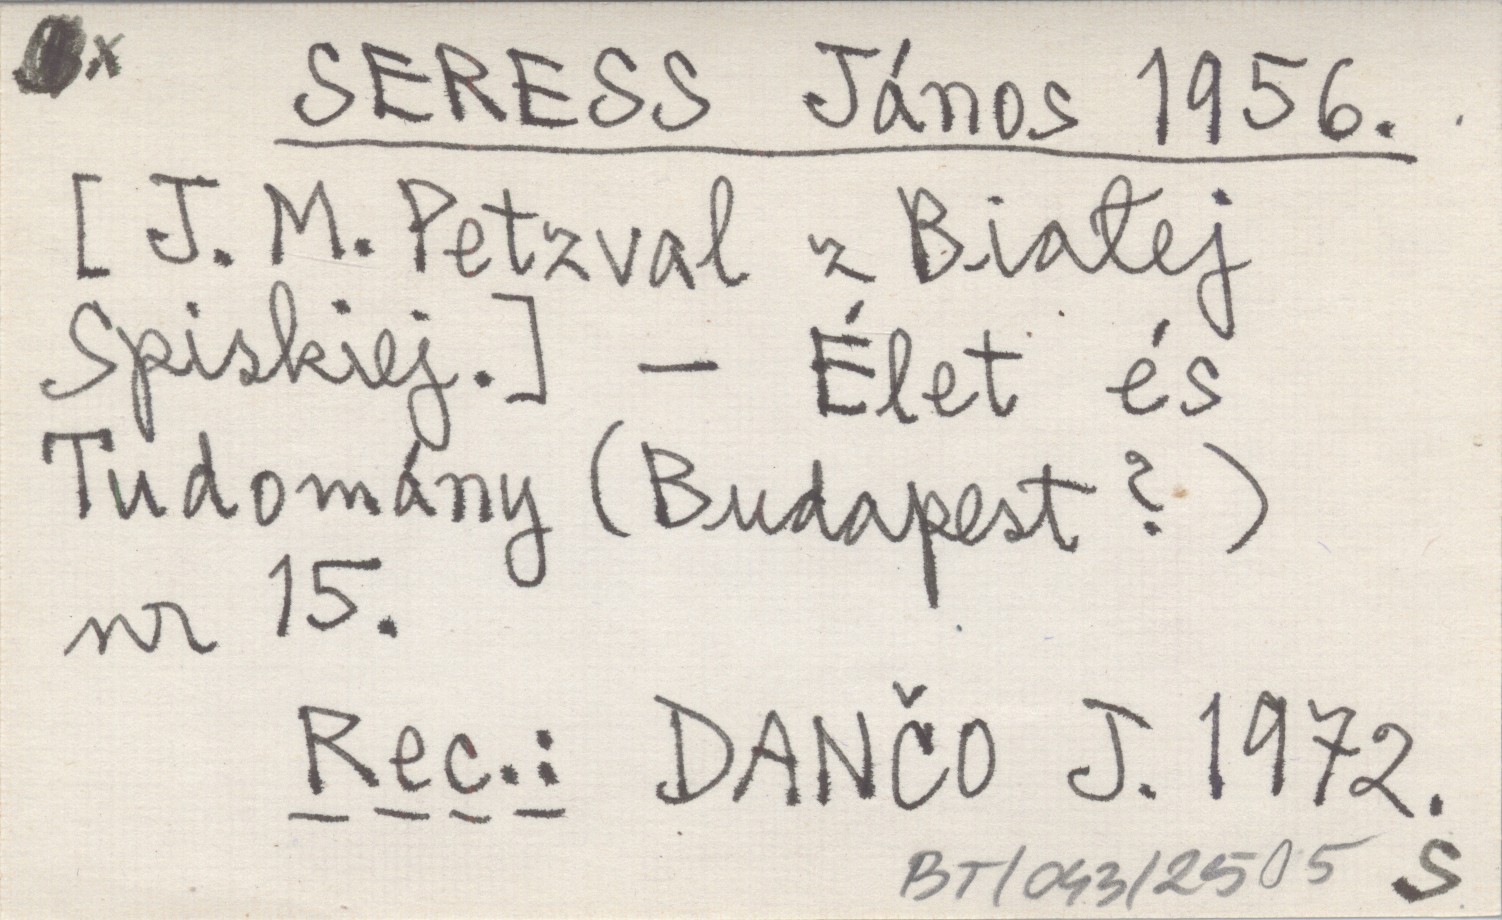 x SERESS János 1956.
[J. M. Petzval z Białej
Spiskiej.] – Élet és
Tudomány (Budapest?)
nr 15.
Rec.: DANČO J. 1972.
BT/043/2505 S